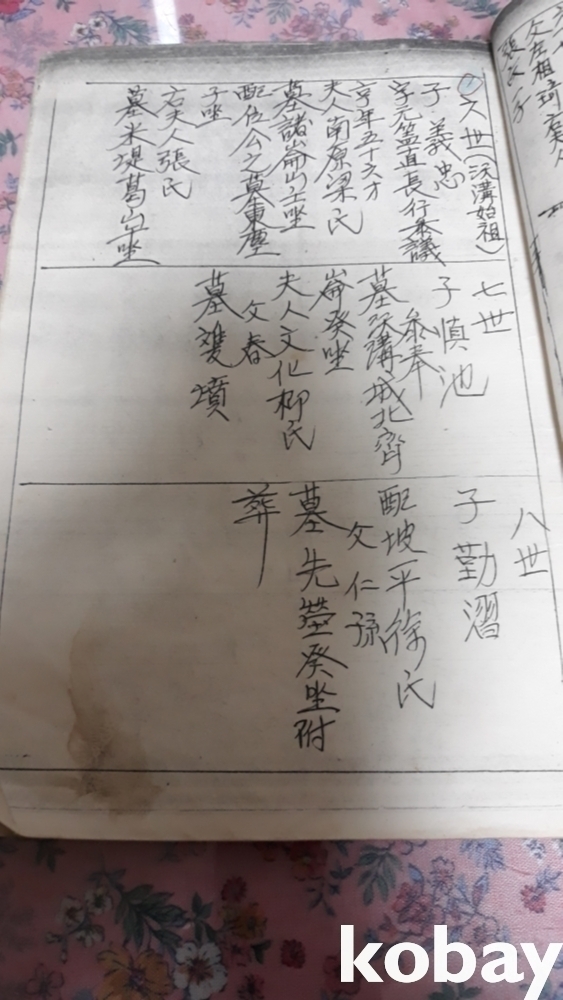 六世(沃溝始祖)
子 義忠
字元益直長行參議
享年五十六才
夫人南原梁氏
墓諸崙山壬坐
配位公之墓東麓
子坐
右夫人張氏
墓米堤葛山坐
七世
子慎池
參奉
墓沃溝城北齊
崙癸坐
夫人文化柳氏
父春
墓雙墳
八世
子勤濯
配坡平氏
父仁孫
墓先塋癸坐附
葬
kobay